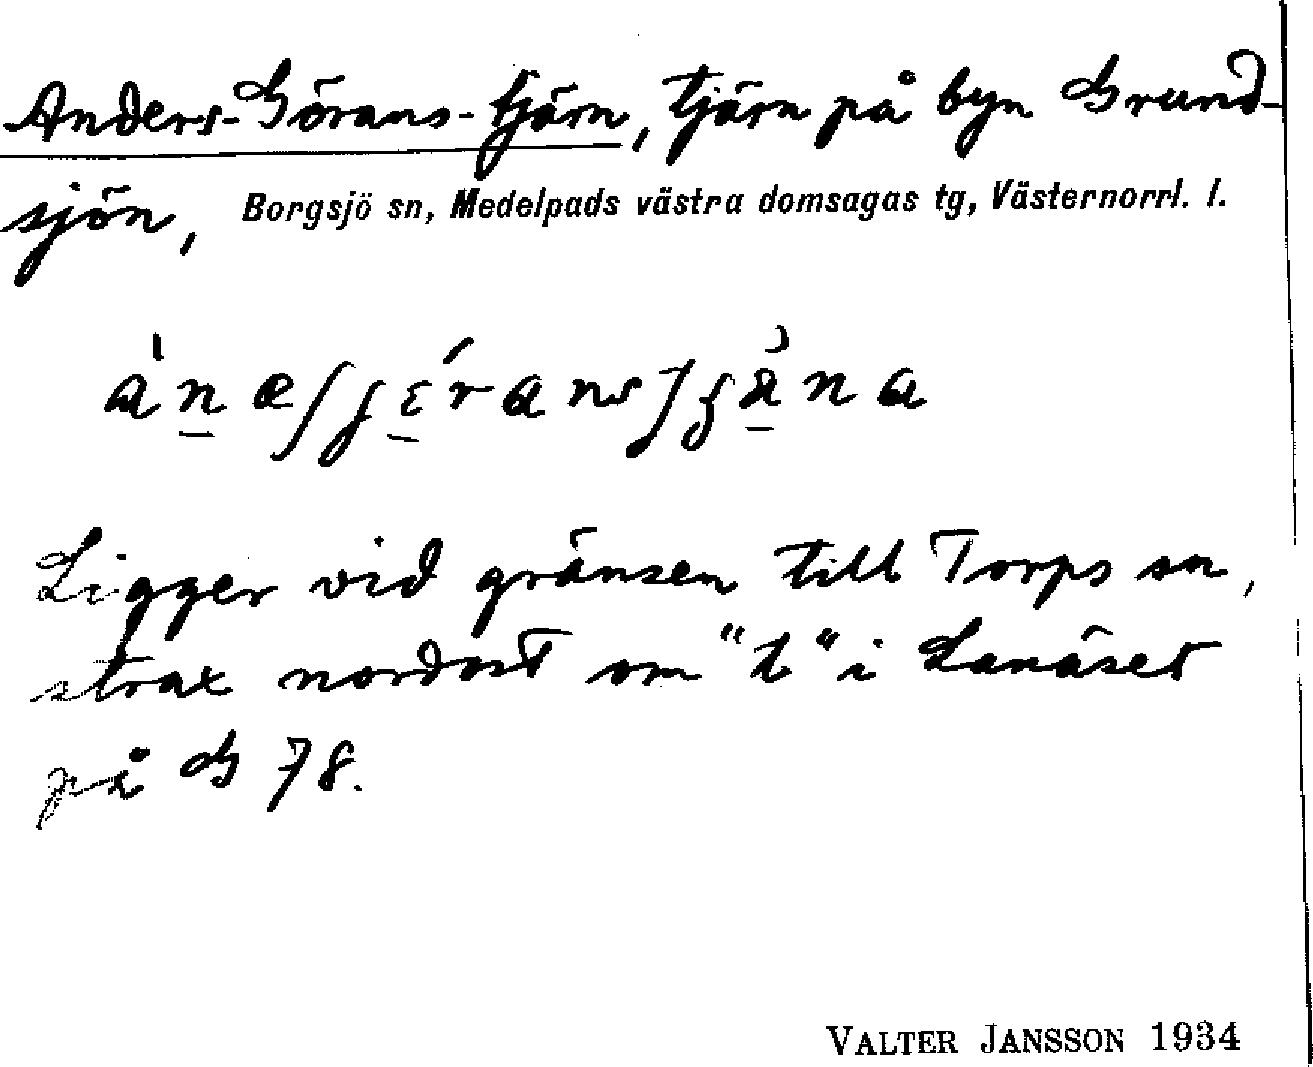 Anders-Görans-tjärn, tjärn på byn Grund-
sjön, Borgsjö sn, Medelpads västra domsagas tg, Västernorrl. l.
Ligger vid gränsen till Torps sn,
strax nordost om "t" i Lanäset
på G 78.
VALTER JANSSON 1934